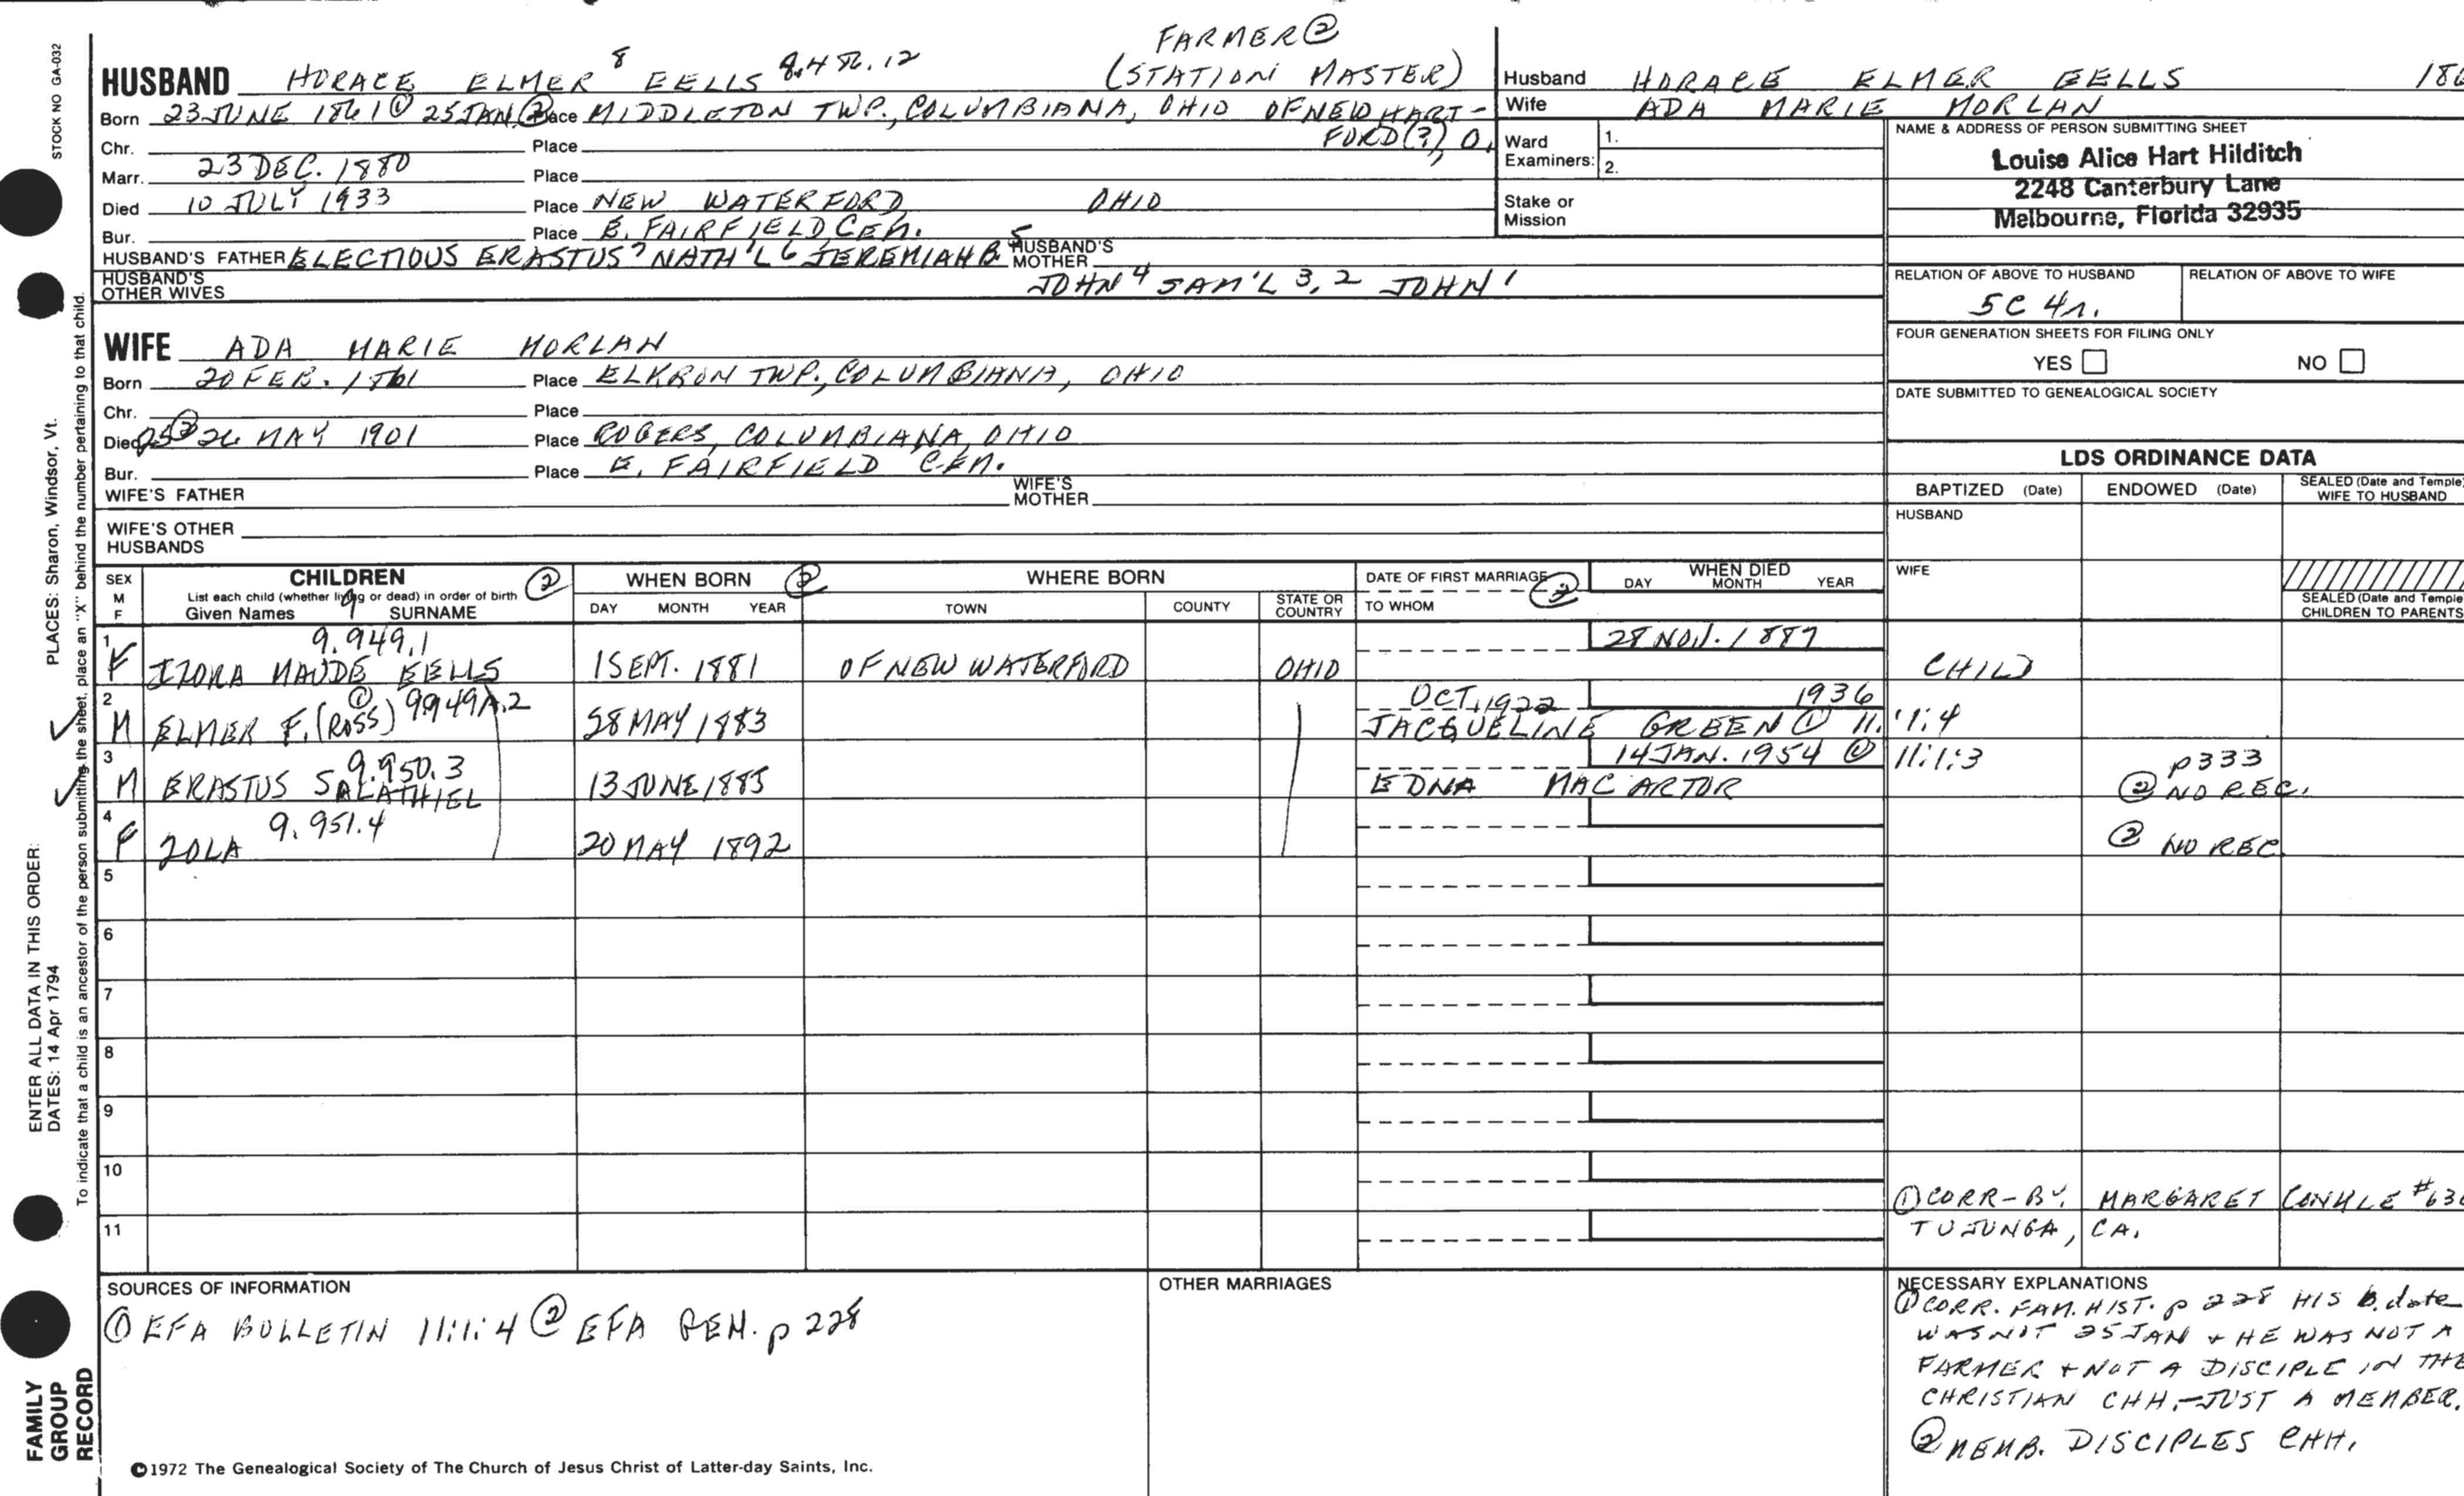 STOCK NO GA-032
PLACES: Sharon, Windsor, Vt.
ENTER ALL DATA IN THIS ORDER:
DATES: 14 Apr 1794
To indicate that a child is an ancestor of the person submitting the sheet, place an "X" behind the number pertaining to that child.
FAMILY
GROUP
RECORD
FARMER ②
HUSBAND HORACE ELMER 8 EELLS
(STATION MASTER)
Born 23 JUNE 1861 ① 25 JAN ② Place MIDDLETON TWP., COLUMBIANA, OHIO OF NEW HART-
FORD (?), O.
Chr. Place
Marr. 23 DEC. 1880 Place
Died 10 JULY 1933 Place NEW WATERFORD OHIO
Bur. Place E. FAIRFIELD CEM.
HUSBAND'S FATHER ELECTIOUS ERASTUS 7 NATH'L 6 JEREMIAH B 5 HUSBAND'S MOTHER
HUSBAND'S OTHER WIVES JOHN 4 SAM'L 3, 2 JOHN 1
WIFE ADA MARIE MORLAN
Born 20 FEB. 1861 Place ELKRON TWP., COLUMBIANA, OHIO
Chr. Place
Died 25 ② 26 MAY 1901 Place ROGERS, COLUMBIANA, OHIO
Bur. Place E. FAIRFIELD CEM.
WIFE'S FATHER WIFE'S MOTHER
WIFE'S OTHER
HUSBANDS
Husband HORACE ELMER EELLS 186
Wife ADA MARIE MORLAN
Ward
Examiners: 1.
2.
Stake or
Mission
NAME & ADDRESS OF PERSON SUBMITTING SHEET
Louise Alice Hart Hilditch
2248 Canterbury Lane
Melbourne, Florida 32935
RELATION OF ABOVE TO HUSBAND RELATION OF ABOVE TO WIFE
5C 4r.
FOUR GENERATION SHEETS FOR FILING ONLY
YES NO
DATE SUBMITTED TO GENEALOGICAL SOCIETY
LDS ORDINANCE DATA
BAPTIZED (Date) ENDOWED (Date) SEALED (Date and Temple)
WIFE TO HUSBAND
HUSBAND
WIFE
SEALED (Date and Temple
CHILDREN TO PARENTS
SEX
M
F
CHILDREN ②
List each child (whether living or dead) in order of birth
Given Names 9 SURNAME
WHEN BORN ②
DAY MONTH YEAR
WHERE BORN
TOWN COUNTY STATE OR
COUNTRY
DATE OF FIRST MARRIAGE ②
TO WHOM
WHEN DIED
DAY MONTH YEAR
1 9.949.1 28 NOV. 1887
F IZORA MAUDE EELLS 1 SEPT. 1881 OF NEW WATERFORD OHIO CHILD
2 ① 9.949A.2 OCT. 1922 1936
M ELMER F. (ROSS) 28 MAY 1883 JACQUELINE GREEN ① 11:1:4
3 9.950.3 14 JAN. 1954 ① 11:1:3 p333
M ERASTUS SALATHIEL 13 JUNE 1885 EDNA MAC ARTOR ② NO REC.
4 9.951.4
F ZOLA 20 MAY 1892 ② NO REC
5
6
7
8
9
10
① CORR-BY. MARGARET CONKLE #636
11 TUJUNGA, CA.
SOURCES OF INFORMATION
① EFA BULLETIN 11:1:4 ② EFA GEN. p 228
OTHER MARRIAGES
NECESSARY EXPLANATIONS
① CORR. FAM. HIST. p 228 HIS b. date
WAS NOT 25 JAN + HE WAS NOT A
FARMER + NOT A DISCIPLE IN THE
CHRISTIAN CHH.-JUST A MEMBER.
② MEMB. DISCIPLES CHH.
©1972 The Genealogical Society of The Church of Jesus Christ of Latter-day Saints, Inc.